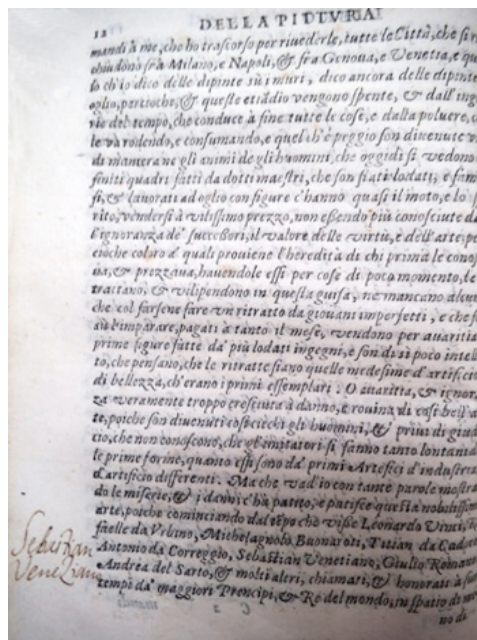 12 DELLA PITTVRA
mandi à me, che ho trascorso per riuederle, tutte le Città, che si r
chiudono frà Milano, e Napoli, & fra Genoua, e Venetia, e qu
lo ch'io dico delle dipinte sù i muri, dico ancora delle dipinte
oglio, perioche, & queste etiādio vengono spente, & dall'ing
rie del tempo, che conduce à fine tutte le cose, e dalla poluere, c
le và rodendo, e consumando, e quel ch'è peggio son diuenute v
di maniera ne gli animi de gli huomini, che oggidì si vedono
finiti quadri fatti da dotti maestri, che son stati lodati, e fam
si, & lauorati ad oglio con figure c'hanno quasi il moto, e lo s
rito, vendersi à vilissimo prezzo, non essendo più conosciute da
l'ignoranza de' successori, il valore delle virtù, e dell'arte, pe
cioche coloro a' quali prouiene l'heredità di chi prima le cono
ua, & prezzaua, hauendole essi per cose di poco momento, le
trattano, & vilipendono in questa guisa, ne mancano alcun
che col farsene fare vn ritratto da giouani imperfetti, e che
sù l'imparare, pagati à tanto il mese, vendono per auaritia
prime figure fatte da' più lodati ingegni, e son di sì poco intel
to, che pensano, che le ritratte siano quelle medesime d'artificio
di bellezza, ch'erano i primi essemplari. O auaritia, & ignor
za veramente troppo cresciuta à danno, e rouina di così bell'a
te, poiche son diuenuti così ciechi gli huomini, & priui di giud
cio, che non conoscono, che gl'imitatori si fanno tanto lontani d
le prime forme, quanto essi sono da' primi Artefici d'industria
d'artificio differenti. Ma che vad'io con tante parole mostra
do le miserie, & i danni c'hà patito, e patisce questa nobilissim
arte, poiche cominciando dal tēpo che visse Leonardo Vinci,
faelle da Vrbino, Michelagnolo Buonaroti, Titian da Cadore
Antonio da Correggio, Sebastian Venetiano, Giulio Romano
Andrea del Sarto, & molti altri, chiamati, & honorati à
tempi da' maggiori Prencipi, & Re del mondo, in spatio di
no di
Sebastian
Veneziano